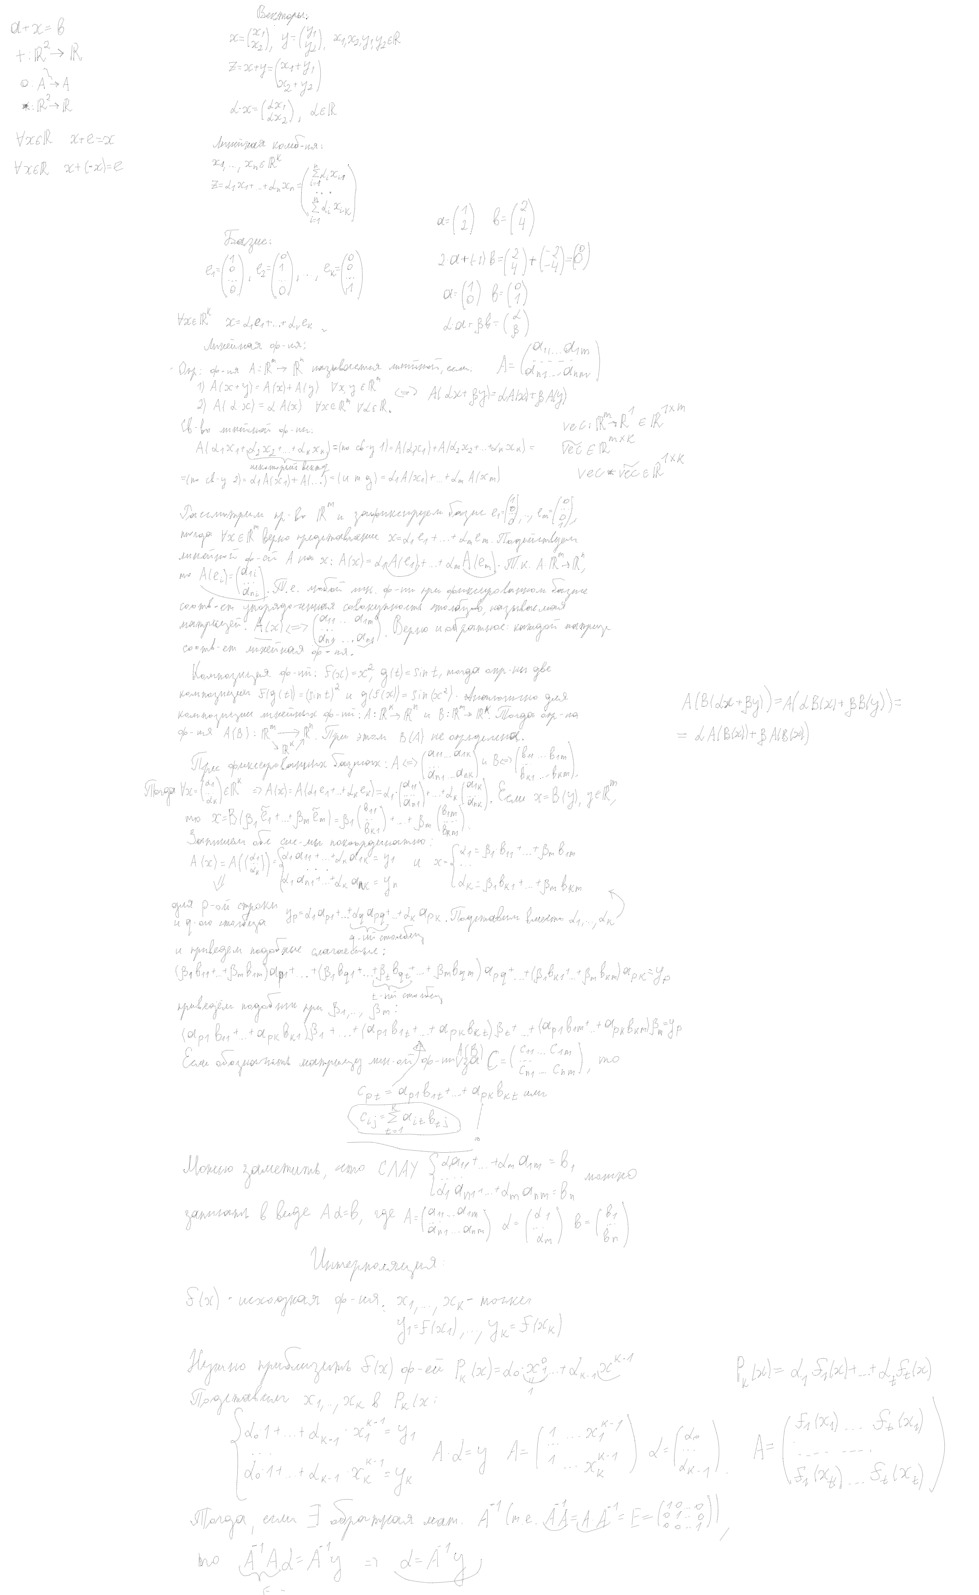 a+x=b
+: ℝ²→ℝ
∘: A²→A
·: ℝ²→ℝ
∀x∈ℝ x+e=x
∀x∈ℝ x+(-x)=e
Векторы:
x=(x₁ x₂), y=(y₁ y₂), x₁,x₂,y₁,y₂∈ℝ
z=x+y=(x₁+y₁ x₂+y₂)
α·x=(αx₁ αx₂), α∈ℝ
Линейная комб-ия:
x₁,..,xₙ∈ℝᵏ
z=α₁x₁+..+αₙxₙ=(Σαᵢxᵢ₁ ... Σαᵢxᵢₖ)
a=(1 2) b=(2 4)
2·a+(-1)b=(2 4)+(-2 -4)=(0 0)
a=(1 0) b=(0 1)
α·a+βb=(α β)
Базис:
e₁=(1 0 ... 0), e₂=(0 1 ... 0), .., eₖ=(0 0 ... 1)
∀x∈ℝᵏ x=α₁e₁+..+αₖeₖ
Линейная ф-ия:
A=(a₁₁...a₁ₘ ... aₙ₁...aₙₘ)
Опр: ф-ия A:ℝᵐ→ℝⁿ называется линейной, если:
1) A(x+y)=A(x)+A(y) ∀x,y∈ℝᵐ
2) A(αx)=αA(x) ∀x∈ℝᵐ ∀α∈ℝ.
⇔ A(αx+βy)=αA(x)+βA(y)
Св-во линейной ф-ии:
A(α₁x₁+α₂x₂+..+αₙxₙ)=(по св-у 1)=A(α₁x₁)+A(α₂x₂+..+αₙxₙ)=
некоторый вектор
=(по св-у 2)=α₁A(x₁)+A(...)=(и т д)=α₁A(x₁)+..+αₘA(xₘ)
vec:ℝᵐ→ℝ¹∈ℝ¹ˣᵐ
vec̃∈ℝᵐˣᵏ
vec*vec̃∈ℝ¹ˣᵏ
Рассмотрим пр-во ℝᵐ и зафиксируем базис e₁=(1 0 ... 0),..,eₘ=(0 ... 0 1),
тогда ∀x∈ℝᵐ верно представление x=α₁e₁+...+αₘeₘ. Подействуем
линейной ф-ей A на x: A(x)=α₁A(e₁)+..+αₘA(eₘ). Т.к. A:ℝᵐ→ℝⁿ,
то A(eᵢ)=(a₁ᵢ ... aₙᵢ). Т.е. любой лин. ф-ии при фиксированном базисе
соотв-ет упорядоченная совокупность столбцов, называемая
матрицей. A(x)⇔(a₁₁...a₁ₘ ... aₙ₁...aₙₘ). Верно и обратное: каждой матрице
соотв-ет линейная ф-ия.
Композиция ф-ий: f(x)=x², g(t)=sin t, тогда опр-ны две
композиции f(g(t))=(sin t)² и g(f(x))=sin(x²). Аналогично для
композиции линейных ф-ий: A:ℝᵏ→ℝⁿ и B:ℝᵐ→ℝᵏ. Тогда опр-на
ф-ия A(B):ℝᵐ→ℝⁿ. При этом B(A) не определена.
ℝᵏ
A(B(αx+βy))=A(αB(x)+βB(y))=
=αA(B(x))+βA(B(x))
При фиксированных базисах: A⇔(a₁₁...a₁ₖ ... aₙ₁...aₙₖ) и B⇔(b₁₁...b₁ₘ ... bₖ₁...bₖₘ).
Тогда ∀x=(α₁ ... αₖ)∈ℝᵏ ⇒ A(x)=A(α₁e₁+..+αₖeₖ)=α₁·(a₁₁ ... aₙ₁)+..+αₖ(a₁ₖ ... aₙₖ). Если x=B(y), y∈ℝᵐ,
то x=B(β₁ẽ₁+..+βₘẽₘ)=β₁(b₁₁ ... bₖ₁)+..+βₘ(b₁ₘ ... bₖₘ).
Запишем обе сис-мы покоординатно:
A(x)=A((α₁ ... αₖ))={α₁a₁₁+...+αₖa₁ₖ=y₁ ... α₁aₙ₁+..+αₖaₙₖ=yₙ и x={α₁=β₁b₁₁+..+βₘb₁ₘ ... αₖ=β₁bₖ₁+..+βₘbₖₘ
для p-ой строки
и q-ого столбца yₚ=α₁aₚ₁+..+α_q a_pq+..+αₖaₚₖ. Подставим вместо α₁,..,αₖ
q-ый столбец
и приведём подобные слагаемые:
(β₁b₁₁+..+βₘb₁ₘ)aₚ₁+..+(β₁b_q1+..+βₜb_qt+..+βₘb_qm)a_pq+..+(β₁bₖ₁+..+βₘbₖₘ)aₚₖ=yₚ
t-ый столбец
приведём подобные при β₁,..,βₘ:
(aₚ₁b₁₁+..+aₚₖbₖ₁)β₁+..+(aₚ₁b₁ₜ+..+aₚₖbₖₜ)βₜ+..+(aₚ₁b₁ₘ+..+aₚₖbₖₘ)βₘ=yₚ
Если обозначить матрицу лин-ой ф-ии A(B) за C=(c₁₁...c₁ₘ ... cₙ₁...cₙₘ), то
cₚₜ=aₚ₁b₁ₜ+..+aₚₖbₖₜ или
cᵢⱼ=Σaᵢₜbₜⱼ
Можно заметить, что СЛАУ {α₁a₁₁+...+αₘa₁ₘ=b₁ ... α₁aₙ₁+..+αₘaₙₘ=bₙ можно
записать в виде Aα=b, где A=(a₁₁...a₁ₘ ... aₙ₁...aₙₘ) α=(α₁ ... αₘ) b=(b₁ ... bₙ)
Интерполяция:
f(x)-исходная ф-ия. x₁,..,xₖ-точки
y₁=f(x₁),..,yₖ=f(xₖ)
Нужно приблизить f(x) ф-ей Pₖ(x)=α₀·x⁰+..+αₖ₋₁xᵏ⁻¹
1
Pₖ(x)=α₁f₁(x)+...+αₜfₜ(x)
Подставим x₁,..,xₖ в Pₖ(x:
{α₀1+...+αₖ₋₁·x₁ᵏ⁻¹=y₁ ... α₀·1+..+αₖ₋₁xₖᵏ⁻¹=yₖ A·α=y A=(1...x₁ᵏ⁻¹ ... 1...xₖᵏ⁻¹) α=(α₀ ... αₖ₋₁).
A=(f₁(x₁)...fₜ(x₁) ... f₁(xₜ)...fₜ(xₜ))
Тогда, если ∃ обратная мат. A⁻¹(т.е. A⁻¹A=A A⁻¹=E=(1 0 ..0 0 1 ..0 0 0 ..1)),
то A⁻¹Aα=A⁻¹y ⇒ α=A⁻¹y